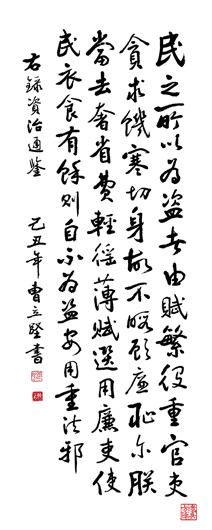 民之所以為盜者由賦繁役重官吏
貪求饑寒切身故不暇顧廉恥尔朕
當去奢省費輕徭薄賦選用廉吏使
民衣食有餘則自不為盜安用重法邪
右錄資治通鑒 己丑年曹立堅書